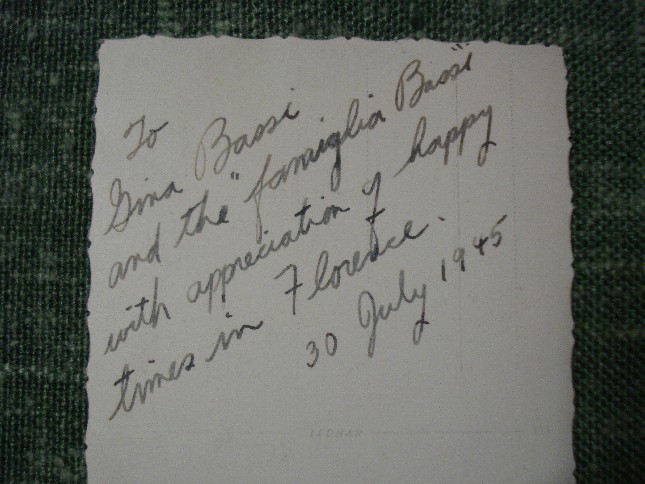 To
Gina Bassi
and the "famiglia Bassi"
with appreciation of happy
times in Florence.
30 July 1945
LEONAR